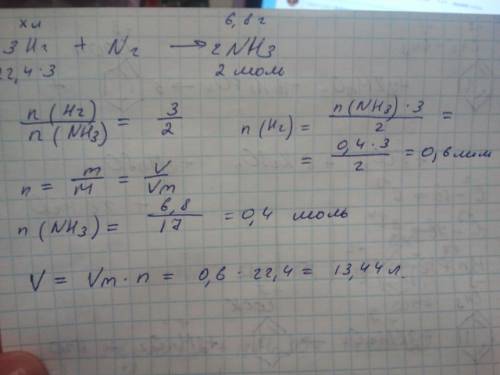 хл 6,8 г
3 H2 + N2 → 2 NH3
22,4·3 2 моль
n(H2) / n(NH3) = 3/2
n(H2) = n(NH3)·3 / 2 =
= 0,4·3 / 2 = 0,6 моль
n = m/M = V/Vm
n(NH3) = 6,8/17 = 0,4 моль
V = Vm · n = 0,6 · 22,4 = 13,44 л.